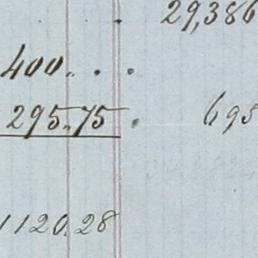 29,386
400. . .
295.75 . 695
1120.28